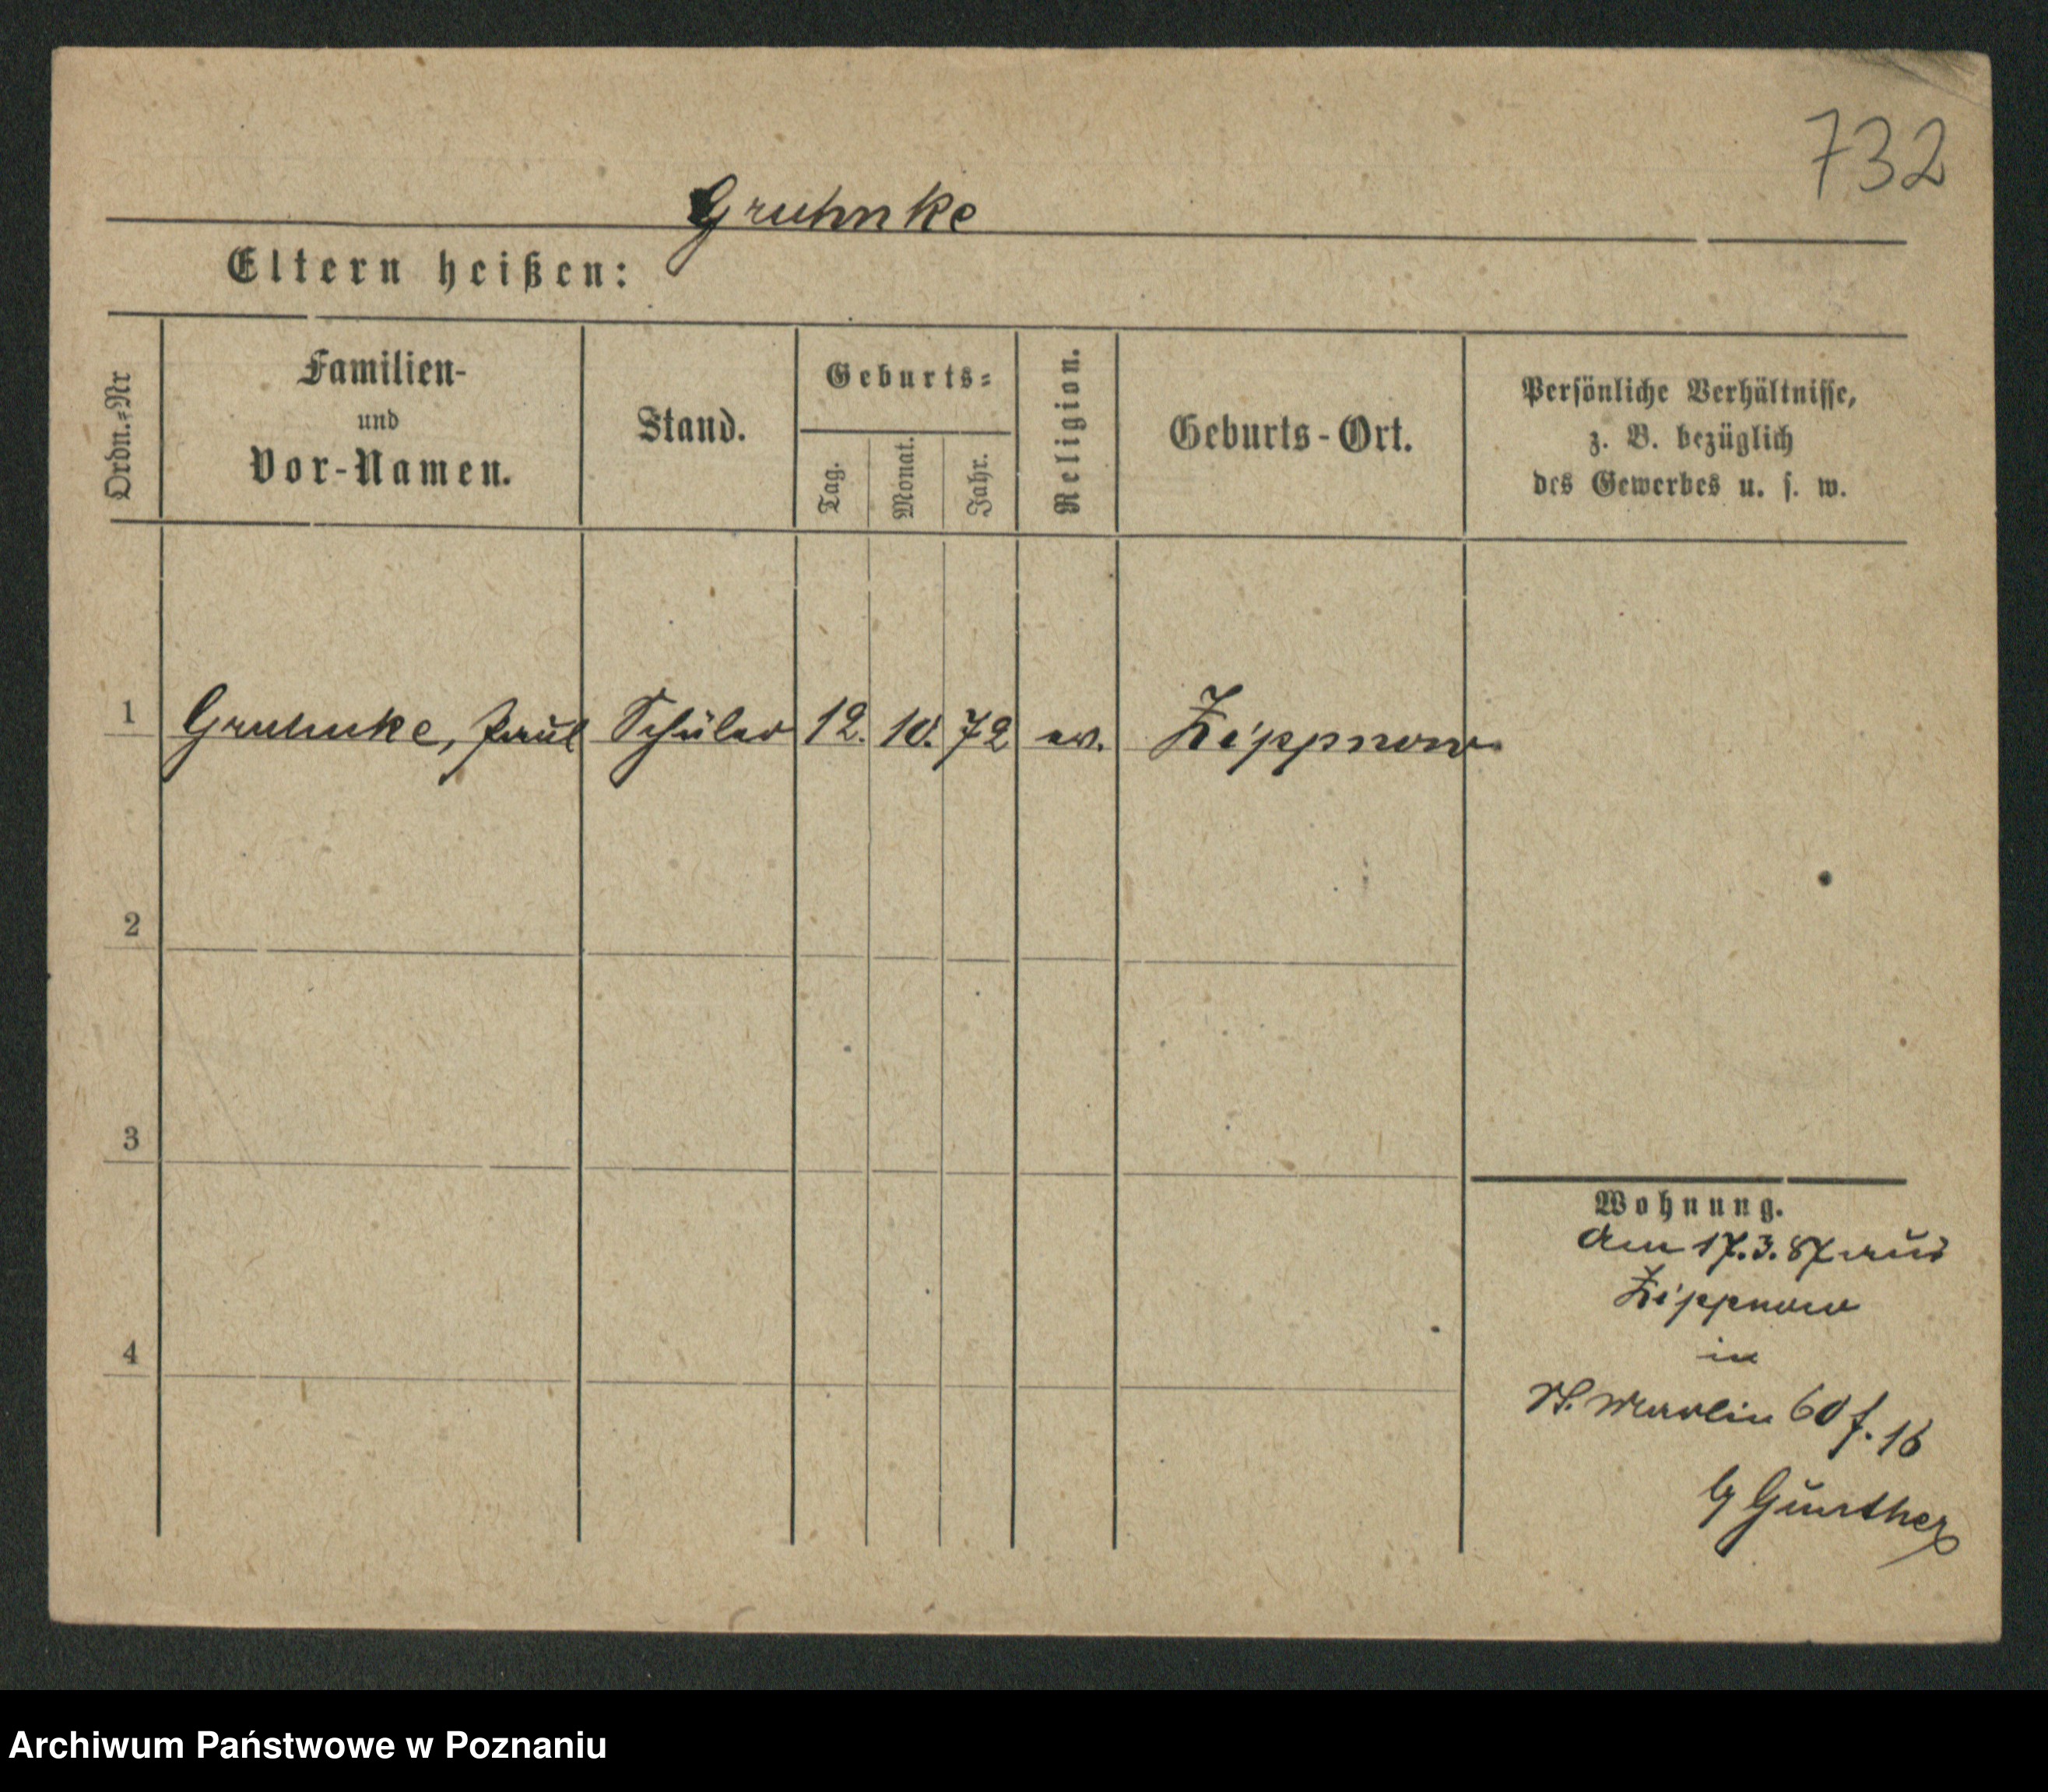 732
Gruhnke
Eltern heißen:
Ordn.=Nr
Familien-
und
Vor-Namen.
Stand.
Geburts=
Tag.
Monat.
Jahr.
Religion.
Geburts-Ort.
Persönliche Verhältnisse,
z. B. bezüglich
des Gewerbes u. s. w.
1 Gruhnke, Paul Schüler 12. 10. 72 ev. Zippnow
2
3
4
Wohnung.
Am 17.3.87 aus
Zippnow
in
St. Martin 60 f. 16
b/ Günther
Archiwum Państwowe w Poznaniu